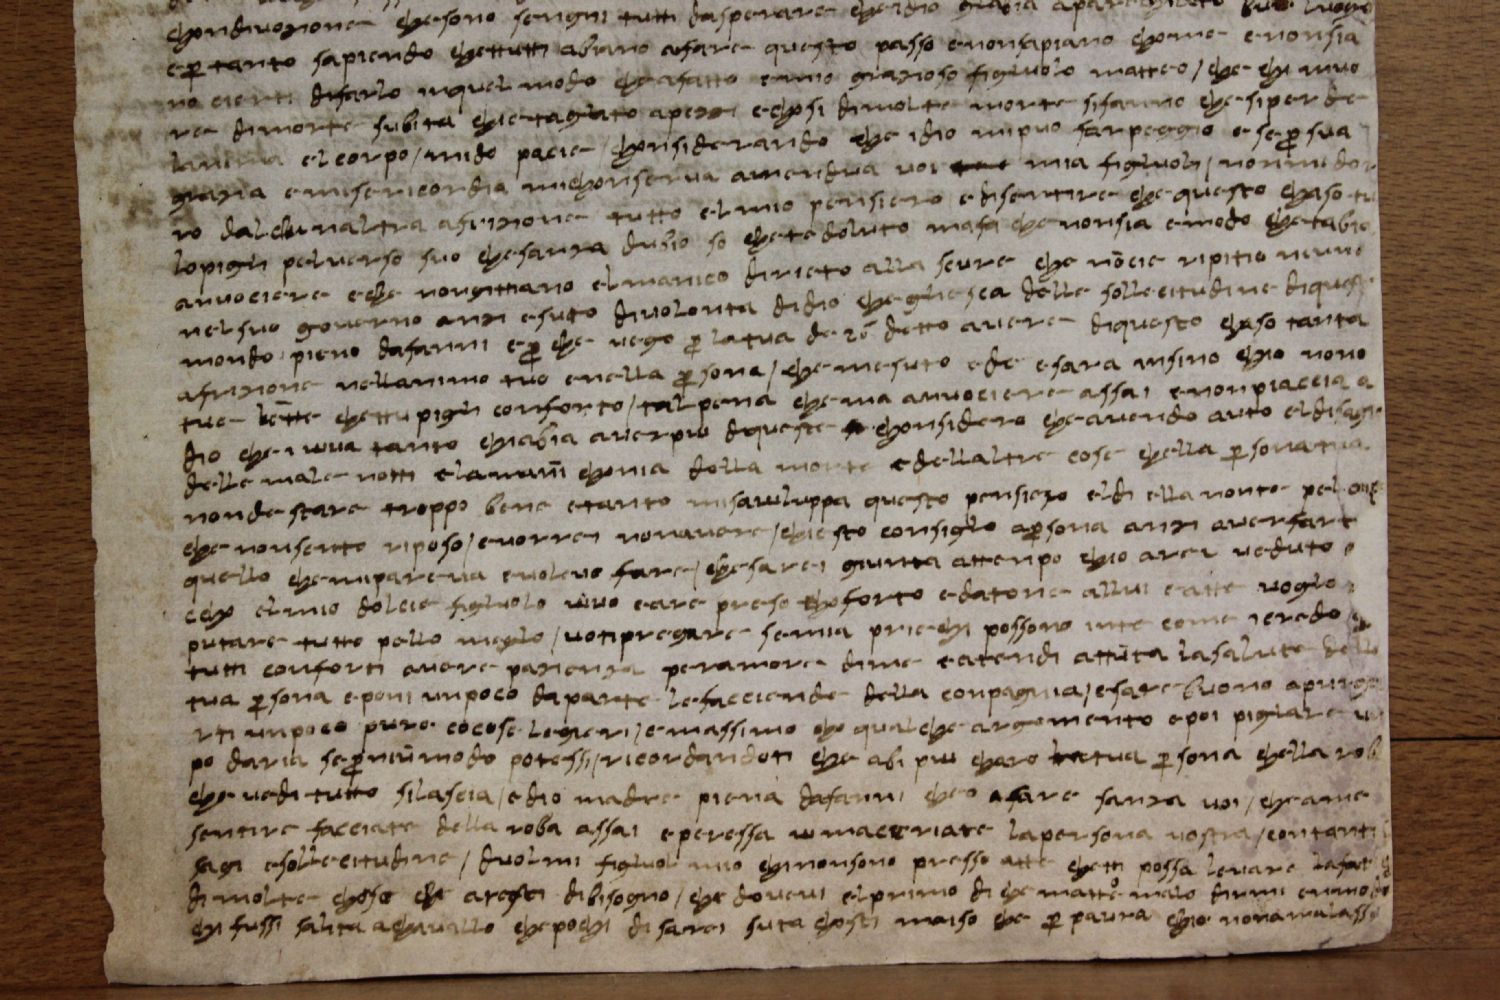 chondivozione che sono sengni tutti dasperare che idio grazia aparechiato buo luogo
e p tanto sapiendo chettutti abiano afare questo passo e nonsapiano chome e nonsia
no cierti difarlo inquel modo che afatto e mio grazioso figluolo matteo / che chi muo
re dimorte subita chi e tagliato apezi e chosi dimolte morte sifanno che si perde
lanima el corpo / mido pacie / chonsiderando che idio mi puo far peggio e se p sua
grazia e misericordia michonserva amendua voi mia figluoli / nonmi do
ro dalchunaltra afrizione tutto el mio pensiero e disentire che questo chaso tu
lo pigli pel verso suo che sanza dubio so che te doluto ma fa che nonsia e modo chetabia
anuociere e che nongittiano el manico dirieto alla scure che no cie ripitio niuno
nel suo governo anzi e suto di volonta didio che gliesca delle sollecitudine di questo
mondo pieno dafanni e p che vego p la tua de 26 detto avere diquesto chaso tanta
afrizione nellanimo tuo e nella psona / che me suto ed e e sara insino chio nono
tue lette chettu pigli conforto / tal pena che ma a nuociere assai e non piaccia a
dio che i viva tanto chiabia aver piu diqueste chonsidero che avendo auto el disagio
delle male notti e la manichonia della morte e dellaltre cose chella psona tua
non de stare troppo bene e tanto misaviluppa questo pensiero el di ella notte pel
che non sento riposo / e vorrei nonavere / chiesto consiglio apsona anzi aver fatto
quello che mi pareva e volevo fare / che sarei giunta attenpo chio arei veduto
el mio dolcie figluolo vivo e are preso choforto e datone allui e atte voglo
putare tutto pello meglo / vo ti pregare se mia priechi possono inte come i credo
tutti conforti avere pazienza peramore dime e atendi attuta la salute dello
tua psona e poni un poco da parte le facciende della conpagnia / e sare buono apurga
rti un poco pure co cose legieri / e massimo cho qualche argomento e poi pigliare
po daria se p niu modo potessi / ricordandoti che abi piu charo la tua psona chella rob
che vedi tutto silascia / e dio madre piena dafanni che o afare sanza voi / che a me
sentire facciate della roba assai e per essa vi maceriate la persona vostra / con tanti
sagi e sollecitudine / duolmi figluol mio chi nonsono presso atte chetti possa levare la fat
di molte chose che aresti dibisogno / che dovevi el primo di che matteo malo dirmi e
chi fussi salita a chavallo che pochi di sarei suta chosti ma i so che p paura chio nonamalassi